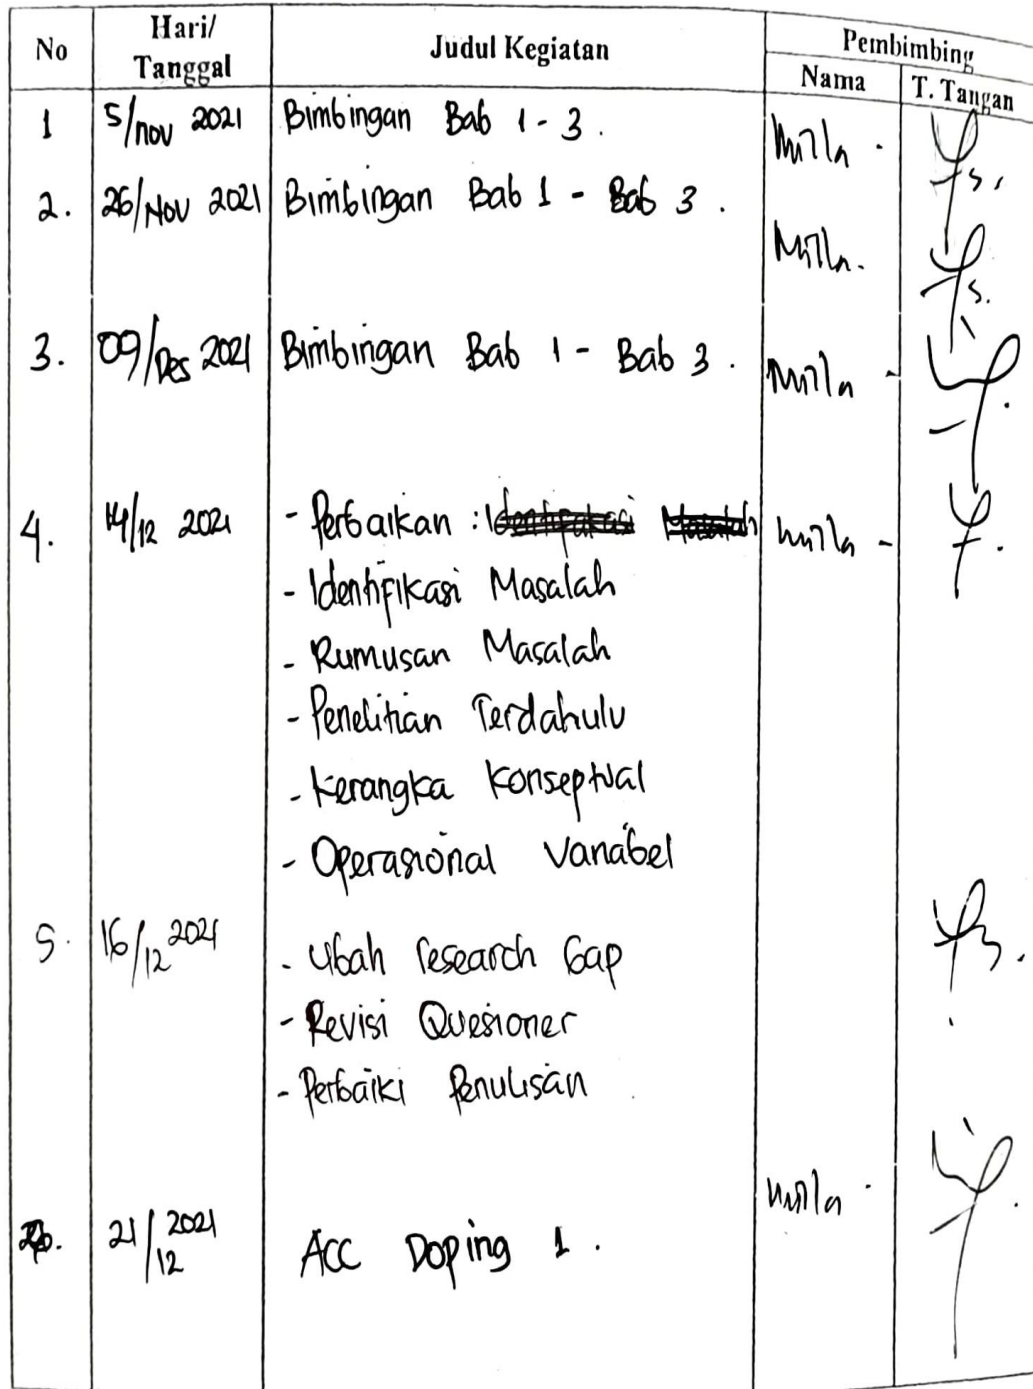 No Hari/ Tanggal Judul Kegiatan Pembimbing
Nama T. Tangan
1 5/nov 2021 Bimbingan Bab 1 - 3 . Milla -
2. 26/Nov 2021 Bimbingan Bab 1 - Bab 3 . Milla.
3. 09/Des 2021 Bimbingan Bab 1 - Bab 3 . Milla -
4. 14/12 2021 - Perbaikan : Milla -
- Identifikasi Masalah
- Rumusan Masalah
- Penelitian Terdahulu
- Kerangka Konseptual
- Operasional Variabel
5. 16/12 2021 - Ubah Research Gap
- Revisi Quesioner
- Perbaiki Penulisan
21/12 2021 ACC Doping 1 . Milla -